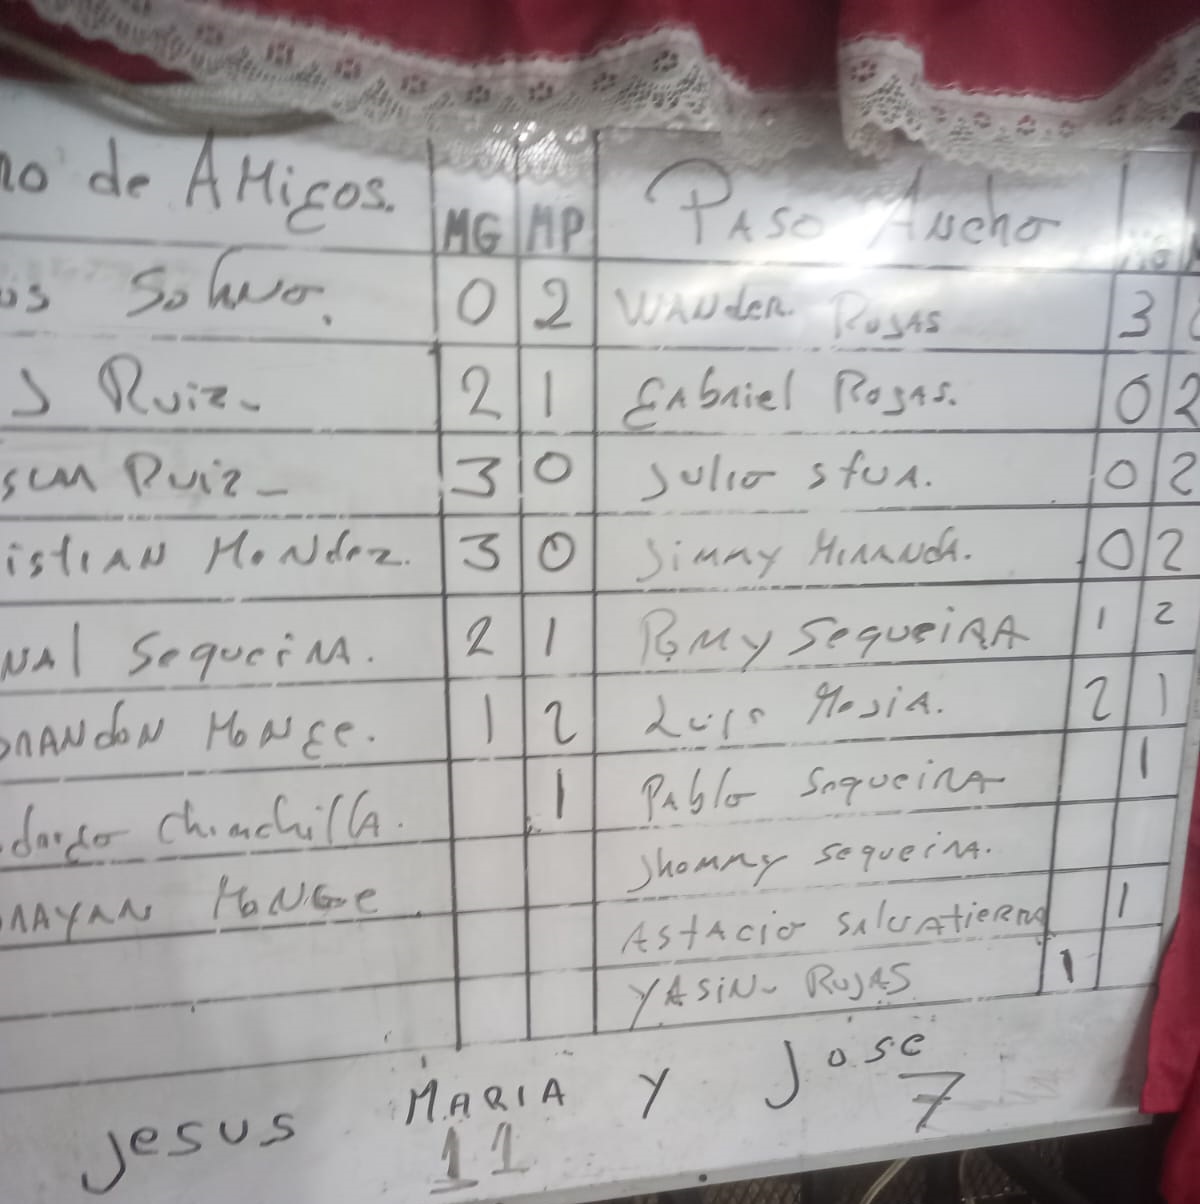 no de AMigos. MG MP PASO ANcho MG
Solano. 0 2 WANder ROJAS 3
J Ruiz- 2 1 GAbriel ROJAS. 0 2
Ruiz- 3 0 Julio 0 2
istiAN MeNdez. 3 0 JiMMy MirANdA. 0 2
NAl SequeirA. 2 1 RoMy SequeirAA 1 2
rANdoN MoNge. 1 2 Luis MeJiA. 2 1
ChinchillA. 1 PAblo SequeirA 1
rAyAN MoNGe Jhonny SequeirA.
AstAcio SAlvAtierra 1
YASiN- ROJAS 1
JESUS MARIA Y José
11 7